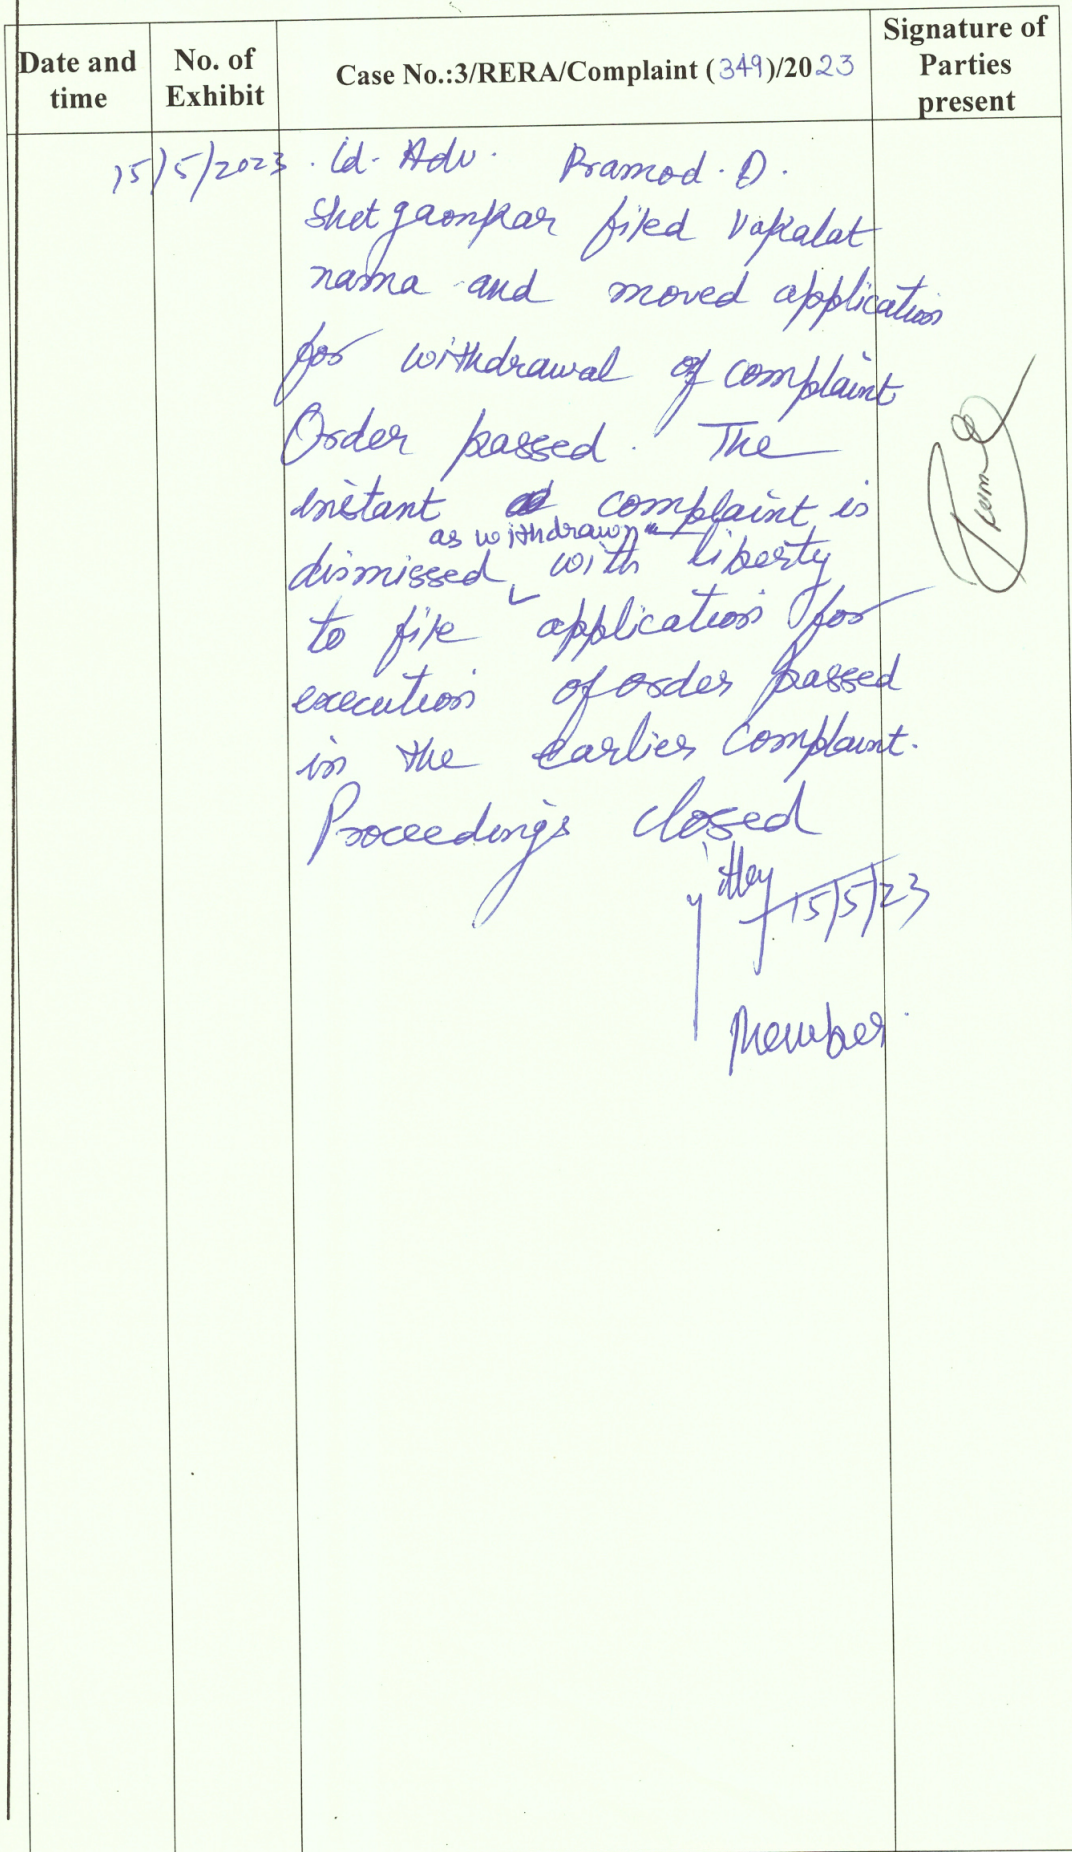 Date and time
No. of Exhibit
Case No.:3/RERA/Complaint (349)/2023
Signature of Parties present
15/5/2023. Ld. Adv. Pramod. D.
Shetgaonkar filed Vakalat
nama and moved application
for withdrawal of complaint
Order passed. The
instant complaint is
dismissed as withdrawn with liberty
to file application for
execution of order passed
in the earlier complaint.
Proceedings closed
15/5/23
Member.